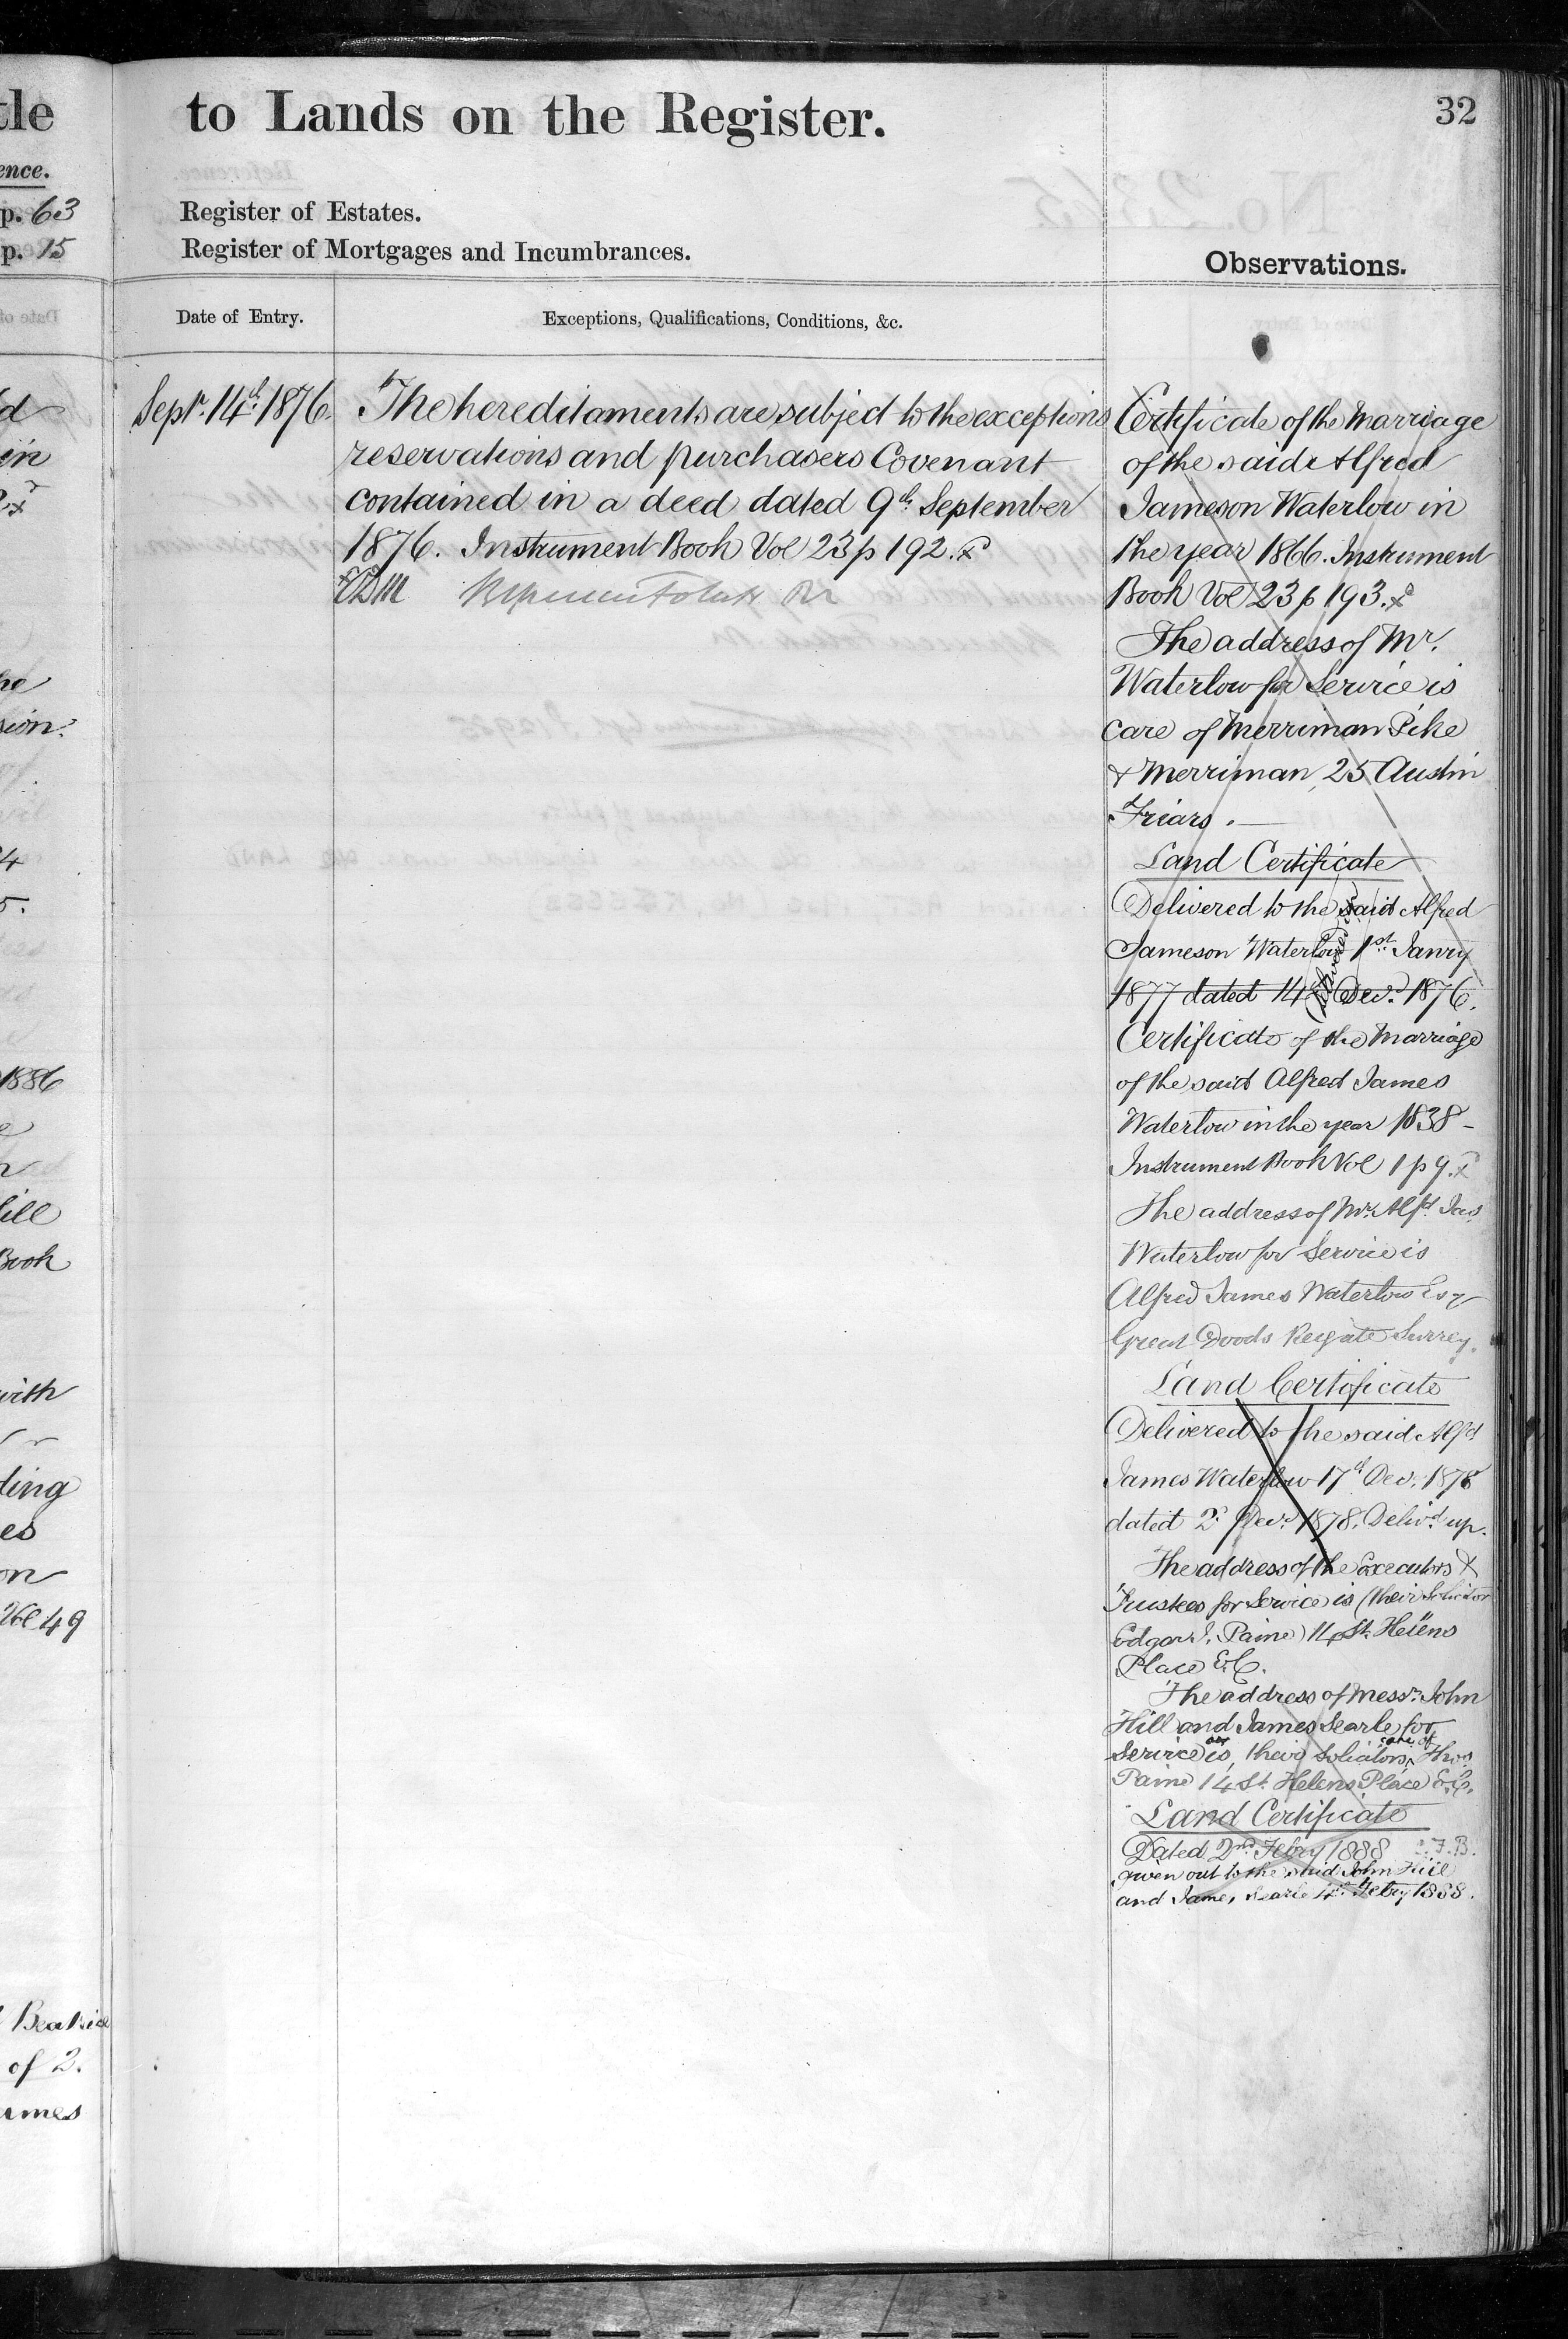 tle
ence.
p. 63
p. 15
d
in
he
sion.
4
5.
1886
ill
Book
with
ding
es
on
Vol 49
Beatrice
of 2.
ames
to Lands on the Register.
32
Register of Estates.
Register of Mortgages and Incumbrances.
Observations.
Date of Entry.
Exceptions, Qualifications, Conditions, &c.
Sept. 14th 1876.
The hereditaments are subject to the exceptions
reservations and purchasers Covenant
contained in a deed dated 9th September
1876. Instrument Book Vol 23 p 192.
Certificate of the Marriage
of the said Alfred
Jameson Waterlow in
the year 1866. Instrument
Book Vol 23 p 193.
The address of Mr.
Waterlow for Service is
care of Merriman Pike
& Merriman, 25 Austin
Friars.
Land Certificate
Delivered to the said Alfred
Jameson Waterlow 1st Janry
1877 dated 14th Decr. 1876.
Certificate of the Marriage
of the said Alfred James
Waterlow in the year 1838 -
Instrument Book Vol 1 p 9.
The address of Mr. Alfd. Jas.
Waterlow for Service is
Alfred James Waterlow Esq
Great Doods Reigate Surrey.
Land Certificate
Delivered to the said Alfd
James Waterlow 17th Dec. 1878
dated 2d Decr. 1878. Delivd. up.
The address of the Executors &
Trustees for Service is (their Solicitor
Edgar J. Paine) 14 St. Helens
Place E.C.
The address of Messrs. John
Hill and James Searle for
Service is, their Solicitors care of Thos
Paine 14 St. Helens Place E.C.
Land Certificate
Dated 2nd Febry 1888
given out to the said John Hill
and James Searle 4th Febry 1888.